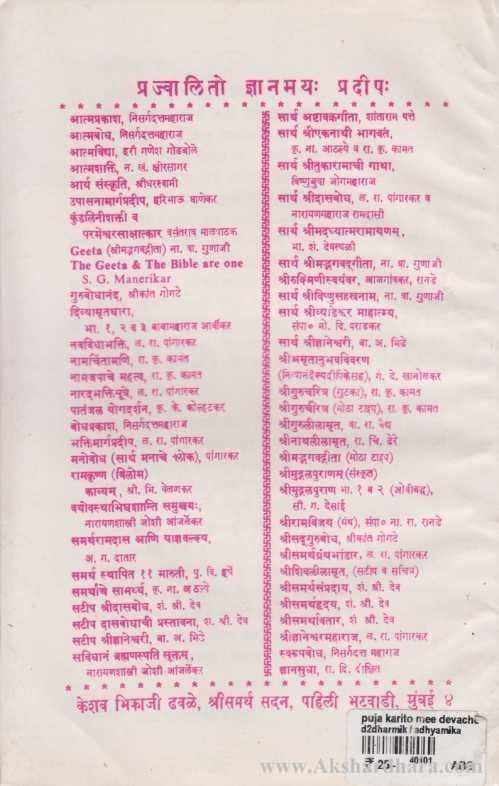 प्रज्वालितो ज्ञानमयः प्रदीपः
आत्मप्रकाश, निसर्गदत्तमहाराज
आत्मबोध, निसर्गदत्तमहाराज
आत्मविद्या, हरी गणेश गोडबोले
आत्मशक्ति, न. खं. क्षीरसागर
आर्य संस्कृति, श्रीधरस्वामी
उपासनामार्गप्रदीप, हरिभाऊ घाणेकर
कुंडलिनीशक्ती व
परमेश्वरसाक्षात्कार वसंतराव मालपाठक
Geeta (श्रीमद्भगवद्गीता) ना. वा. गुणाजी
The Geeta & The Bible are one
S. G. Manerikar
गुरुबोधानंद, श्रीकांत गोगटे
दिव्यामृतधारा,
भा. १, २ व ३ बाबामहाराज आर्वीकर
नवविधाभक्ति, ल. रा. पांगारकर
नामचिंतामणि, रा. कृ. कामत
नामजपाचे महत्त्व, रा. कृ. कामत
नारदभक्तिसूत्रे, ल. रा. पांगारकर
पातंजल योगदर्शन, कृ. के. कोल्हटकर
बोधप्रकाश, निसर्गदत्तमहाराज
भक्तिमार्गप्रदीप, ल. रा. पांगारकर
मनोबोध (सार्थ मनाचे श्लोक), पांगारकर
रामकृष्ण (विलोम)
काव्यम्, श्री. भि. वेलणकर
वयोवस्थाभिधशान्ति समुच्चयः,
नारायणशास्त्री जोशी आंजर्लेकर
समर्थरामदास आणि याज्ञवल्क्य,
अ. ग. दातार
समर्थ स्थापित ११ मारुती, पु. वि. हर्षे
समर्थांचे सामर्थ्य, कृ. ना. आठल्ये
सटीप श्रीदासबोध, शं. श्री. देव
सटीप दासबोधाची प्रस्तावना, शं. श्री. देव
सटीप श्रीज्ञानेश्वरी, बा. अ. भिडे
सविधानं ब्रह्मणस्पति सूक्तम्,
नारायणशास्त्री जोशी आंजर्लेकर
सार्थ अष्टावक्रगीता, शांताराम पत्ते
सार्थ श्रीएकनाथी भागवत,
कृ. ना. आठल्ये व रा. कृ. कामत
सार्थ श्रीतुकारामाची गाथा,
विष्णुबुवा जोगमहाराज
सार्थ श्रीदासबोध, ल. रा. पांगारकर व
नारायणमहाराज रामदासी
सार्थ श्रीमदध्यात्मरामायणम्,
भा. शं. देवस्थळी
सार्थ श्रीमद्भगवद्गीता, ना. वा. गुणाजी
श्रीरुक्मिणीस्वयंवर, आजगांवकर, रानडे
सार्थ श्रीविष्णुसहस्रनाम, ना. वा. गुणाजी
सार्थ श्रीव्याडेश्वर माहात्म्य,
संपा॰ मो. दि. पराडकर
सार्थ श्रीज्ञानेश्वरी, बा. अ. भिडे
श्रीअमृतानुभवविवरण
(नित्यानंदैक्यदीपिकेसह), गं. दे. खानोलकर
श्रीगुरुचरित्र (गुटका), रा. कृ. कामत
श्रीगुरुचरित्र (मोठा टाइप), रा. कृ. कामत
श्रीगुरुलीलामृत, वा. रा. वैद्य
श्रीनाथलीलामृत, रा. चिं. ढेरे
श्रीमद्भगवद्गीता (मोठा टाइप)
श्रीमुद्गलपुराणम् (संस्कृत)
श्रीमुद्गलपुराण भा. १ व २ (ओवीबद्ध),
सी. ग. देसाई
श्रीरामविजय (ग्रंथ), संपा॰ ना. रा. रानडे
श्रीसद्गुरुबोध, श्रीकांत गोगटे
श्रीसमर्थग्रंथभांडार, ल. रा. पांगारकर
श्रीशिवलीलामृत, (सटीप व सचित्र)
श्रीसमर्थसंप्रदाय, शं. श्री. देव
श्रीसमर्थहृदय, शं. श्री. देव
श्रीसमर्थावतार, शं. श्री. देव
श्रीज्ञानेश्वरमहाराज, ल. रा. पांगारकर
स्वरूपबोध, निसर्गदत्त महाराज
ज्ञानसुधा, रा. दि. दीक्षित
केशव भिकाजी ढवळे, श्रीसमर्थ सदन, पहिली भटवाडी, मुंबई ४
puja karito mee devache
d2dharmik / adhyamika
25/- 40101 ABC
www.Akshardhara.com